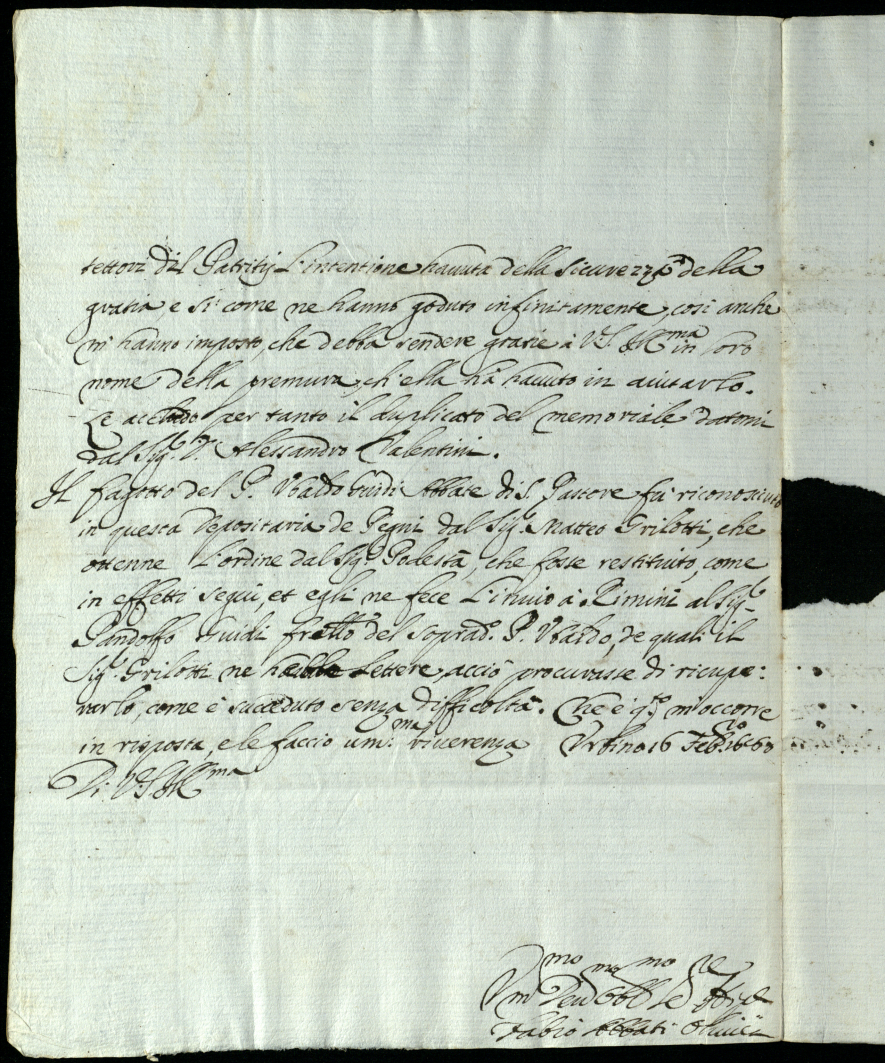 tettori del Patritij l'intentione havuta della sicurezza della
gratia, e si come ne hanno goduto infinitamente, così anche
m'hanno imposto, che debba rendere gratie à V.S. Ill.ma in loro
nome della premura, ch'ella hà havuto in aiutarlo.
Le accludo per tanto il duplicato del memoriale datomi
dal Sig.r D. Alessandro Valentini.
Il fagotto del P. Ubaldo Guidi Abbate di S. Pastore fù riconosciuto
in questa Depositaria de Pegni dal Sig.r Matteo Grilotti, che
ottenne l'ordine dal Sig.r Podestà, che fosse restituito, come
in effetti seguì, et egli ne fece l'invio à Rimini al Sig.r
Pandolfo Guidi fratello del soprad.o P. Ubaldo, de quali il
Sig.r Grilotti ne hebbe lettere, acciò procurasse di ricupe:
rarlo, come è succeduto senza difficoltà. Che è q.to m'occorre
in risposta, e le faccio um.ma riverenza Urbino 16 Feb.ro 1668
Di V.S. Ill.ma
Um.mo Dev.mo Obl.mo Se.re
Fabio Abbati